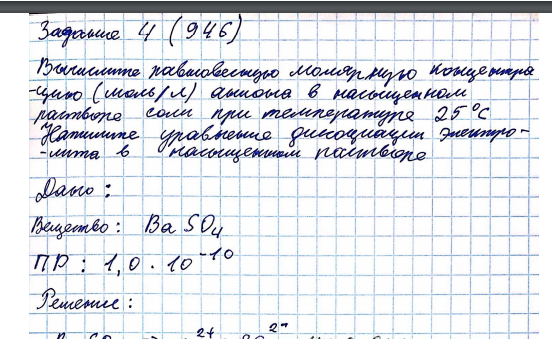 Задание 4 (946)
Вычислите равновесную молярную концентра
-цию (моль/л) аниона в насыщенном
растворе соли при температуре 25°C
Напишите уравнение диссоциации электро-
-лита в насыщенном растворе
Дано:
Вещество: BaSO4
ПР: 1,0 · 10⁻¹⁰
Решение: